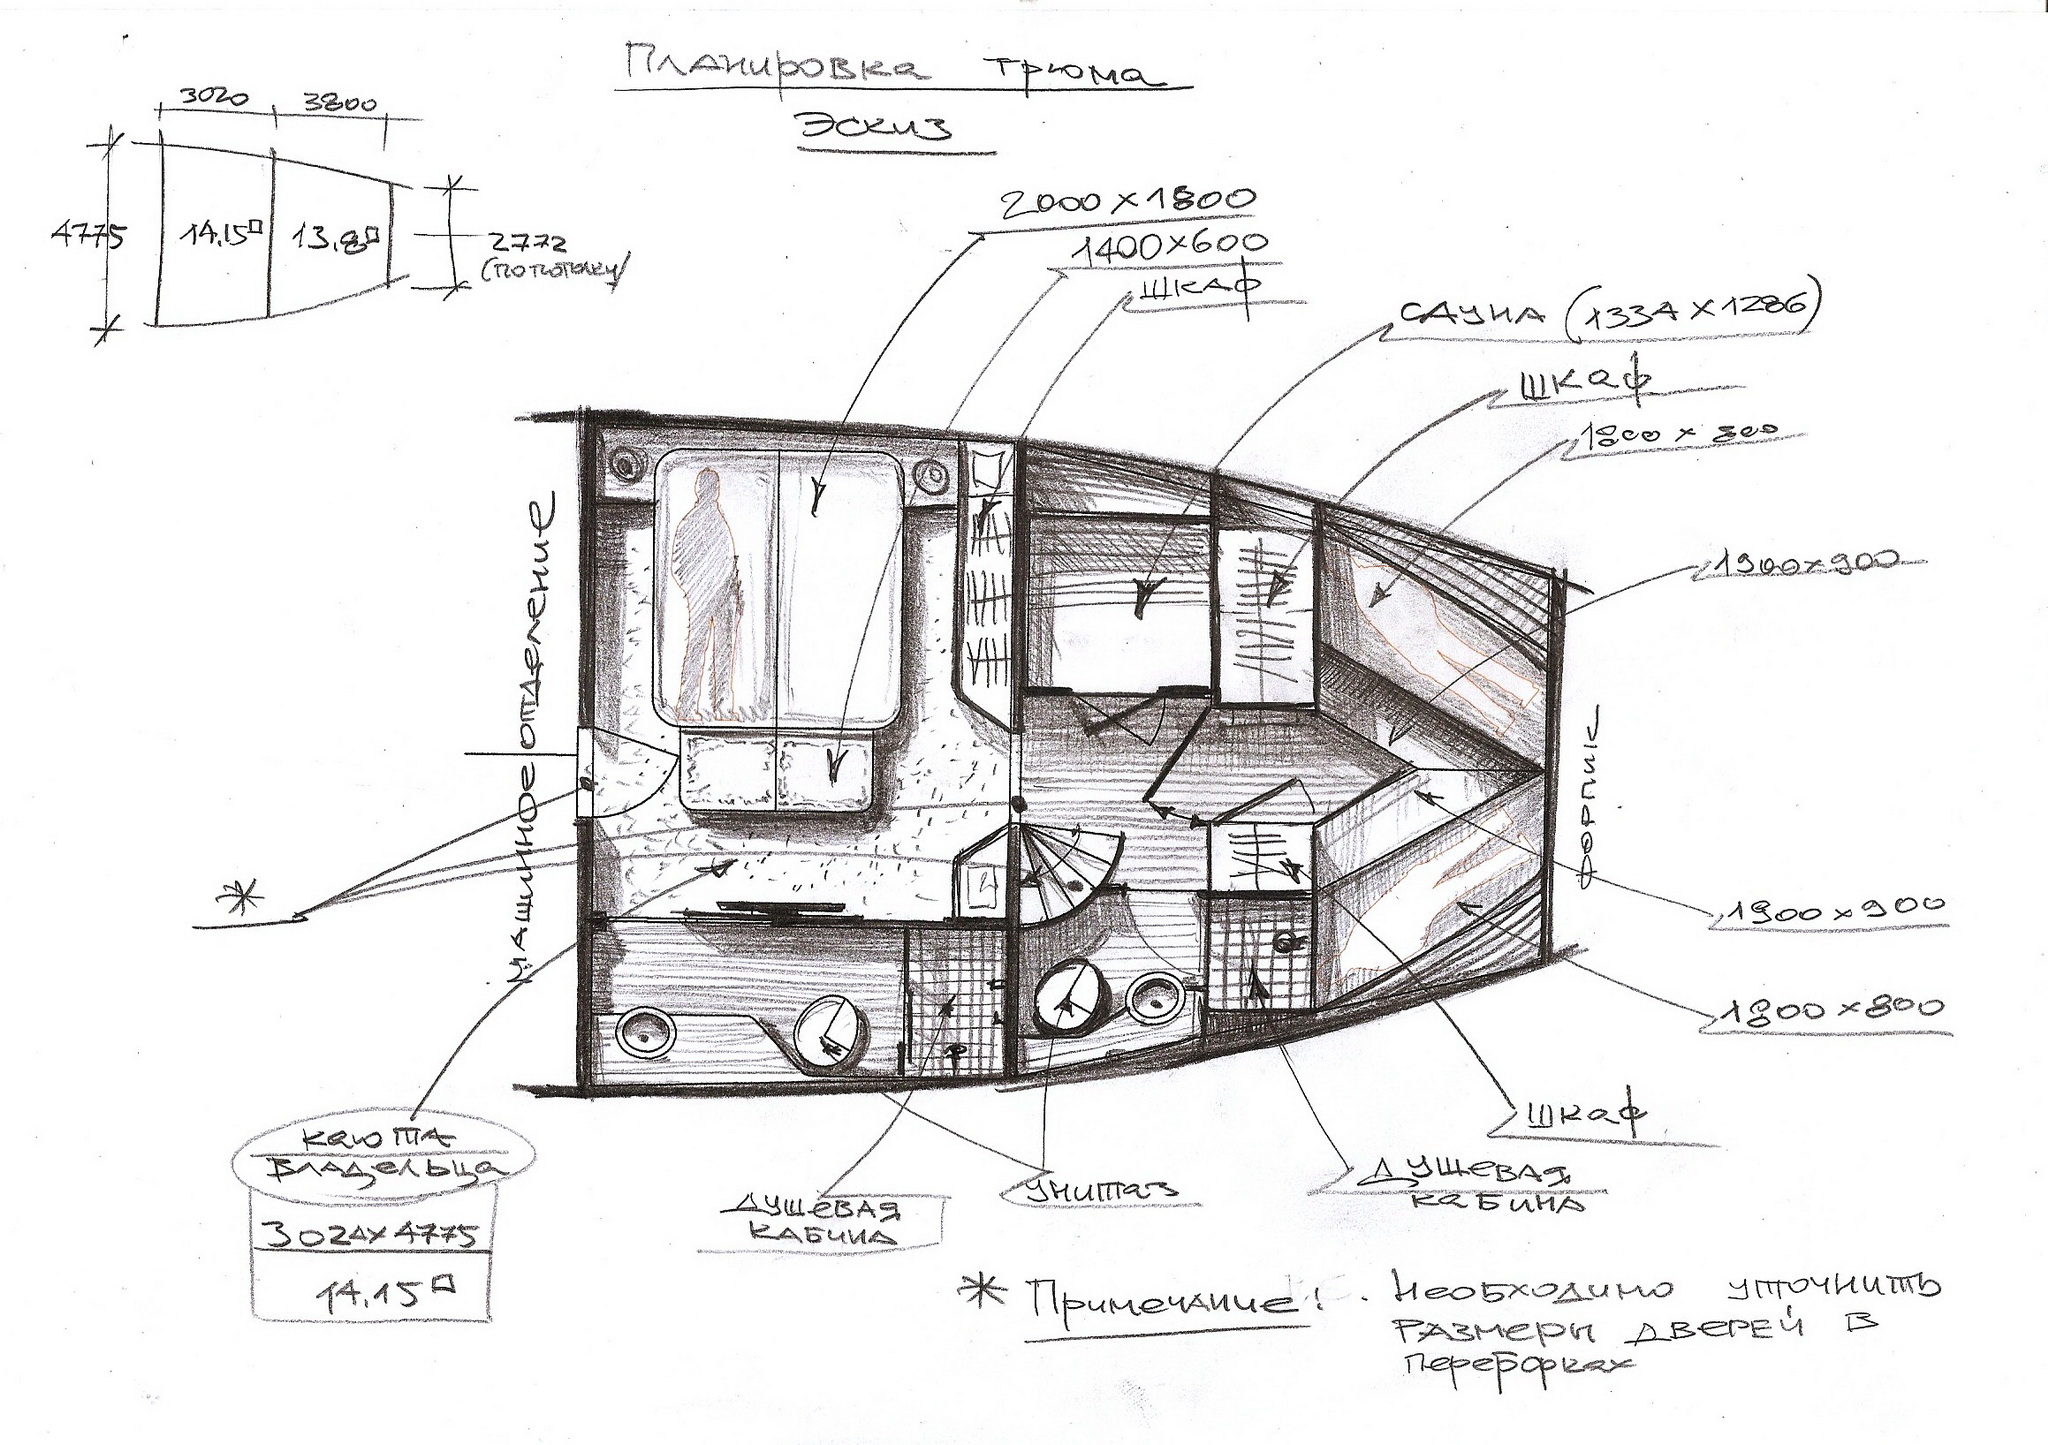 Планировка трюма
Эскиз
3020
3800
4775
14.15□
13.8□
2772
(по потолку)
2000 x 1800
1400x600
шкаф
сауна (1334 x 1286)
шкаф
1800 x 800
1900x900
машинное отделение
форпик
*
1900 x 900
1800 x 800
шкаф
душевая
кабина
унитаз
душевая
кабина
каюта
владельца
3024x4775
14.15□
* Примечание: Необходимо уточнить
размеры дверей в
переборках